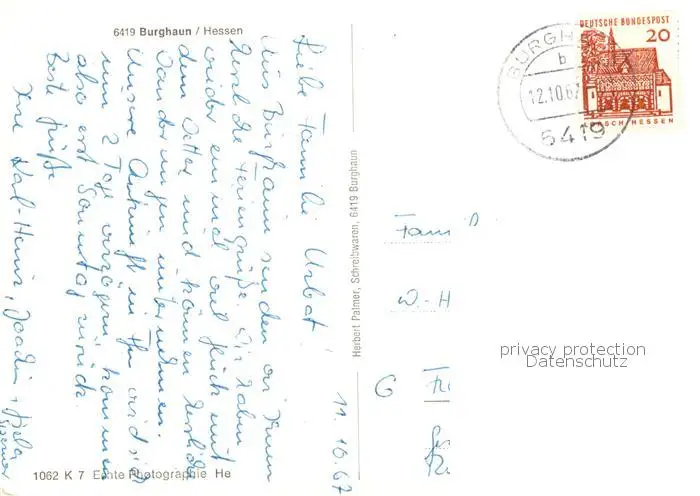 6419 Burghaun / Hessen
11. 10. 67
Liebe Familie Urbat!
Aus Burghaun senden wir Ihnen
herzliche Feriengrüße. Wir haben
wieder einmal viel Glück mit
dem Wetter und können herrliche
Wanderungen unternehmen.
Unsere Ankunft in wird sich
um 2 Tage verzögern, kommen
also erst Sonntag zurück.
Beste Grüße
Ihre Karl-Heinz, Joachim,
1062 K 7 Echte Photographie He
Herbert Palmer, Schreibwaren, 6419 Burghaun
BURGH
b
12.10.67
6419
DEUTSCHE BUNDESPOST
20
LORSCH HESSEN
Fam
W.-H
privacy protection
Datenschutz